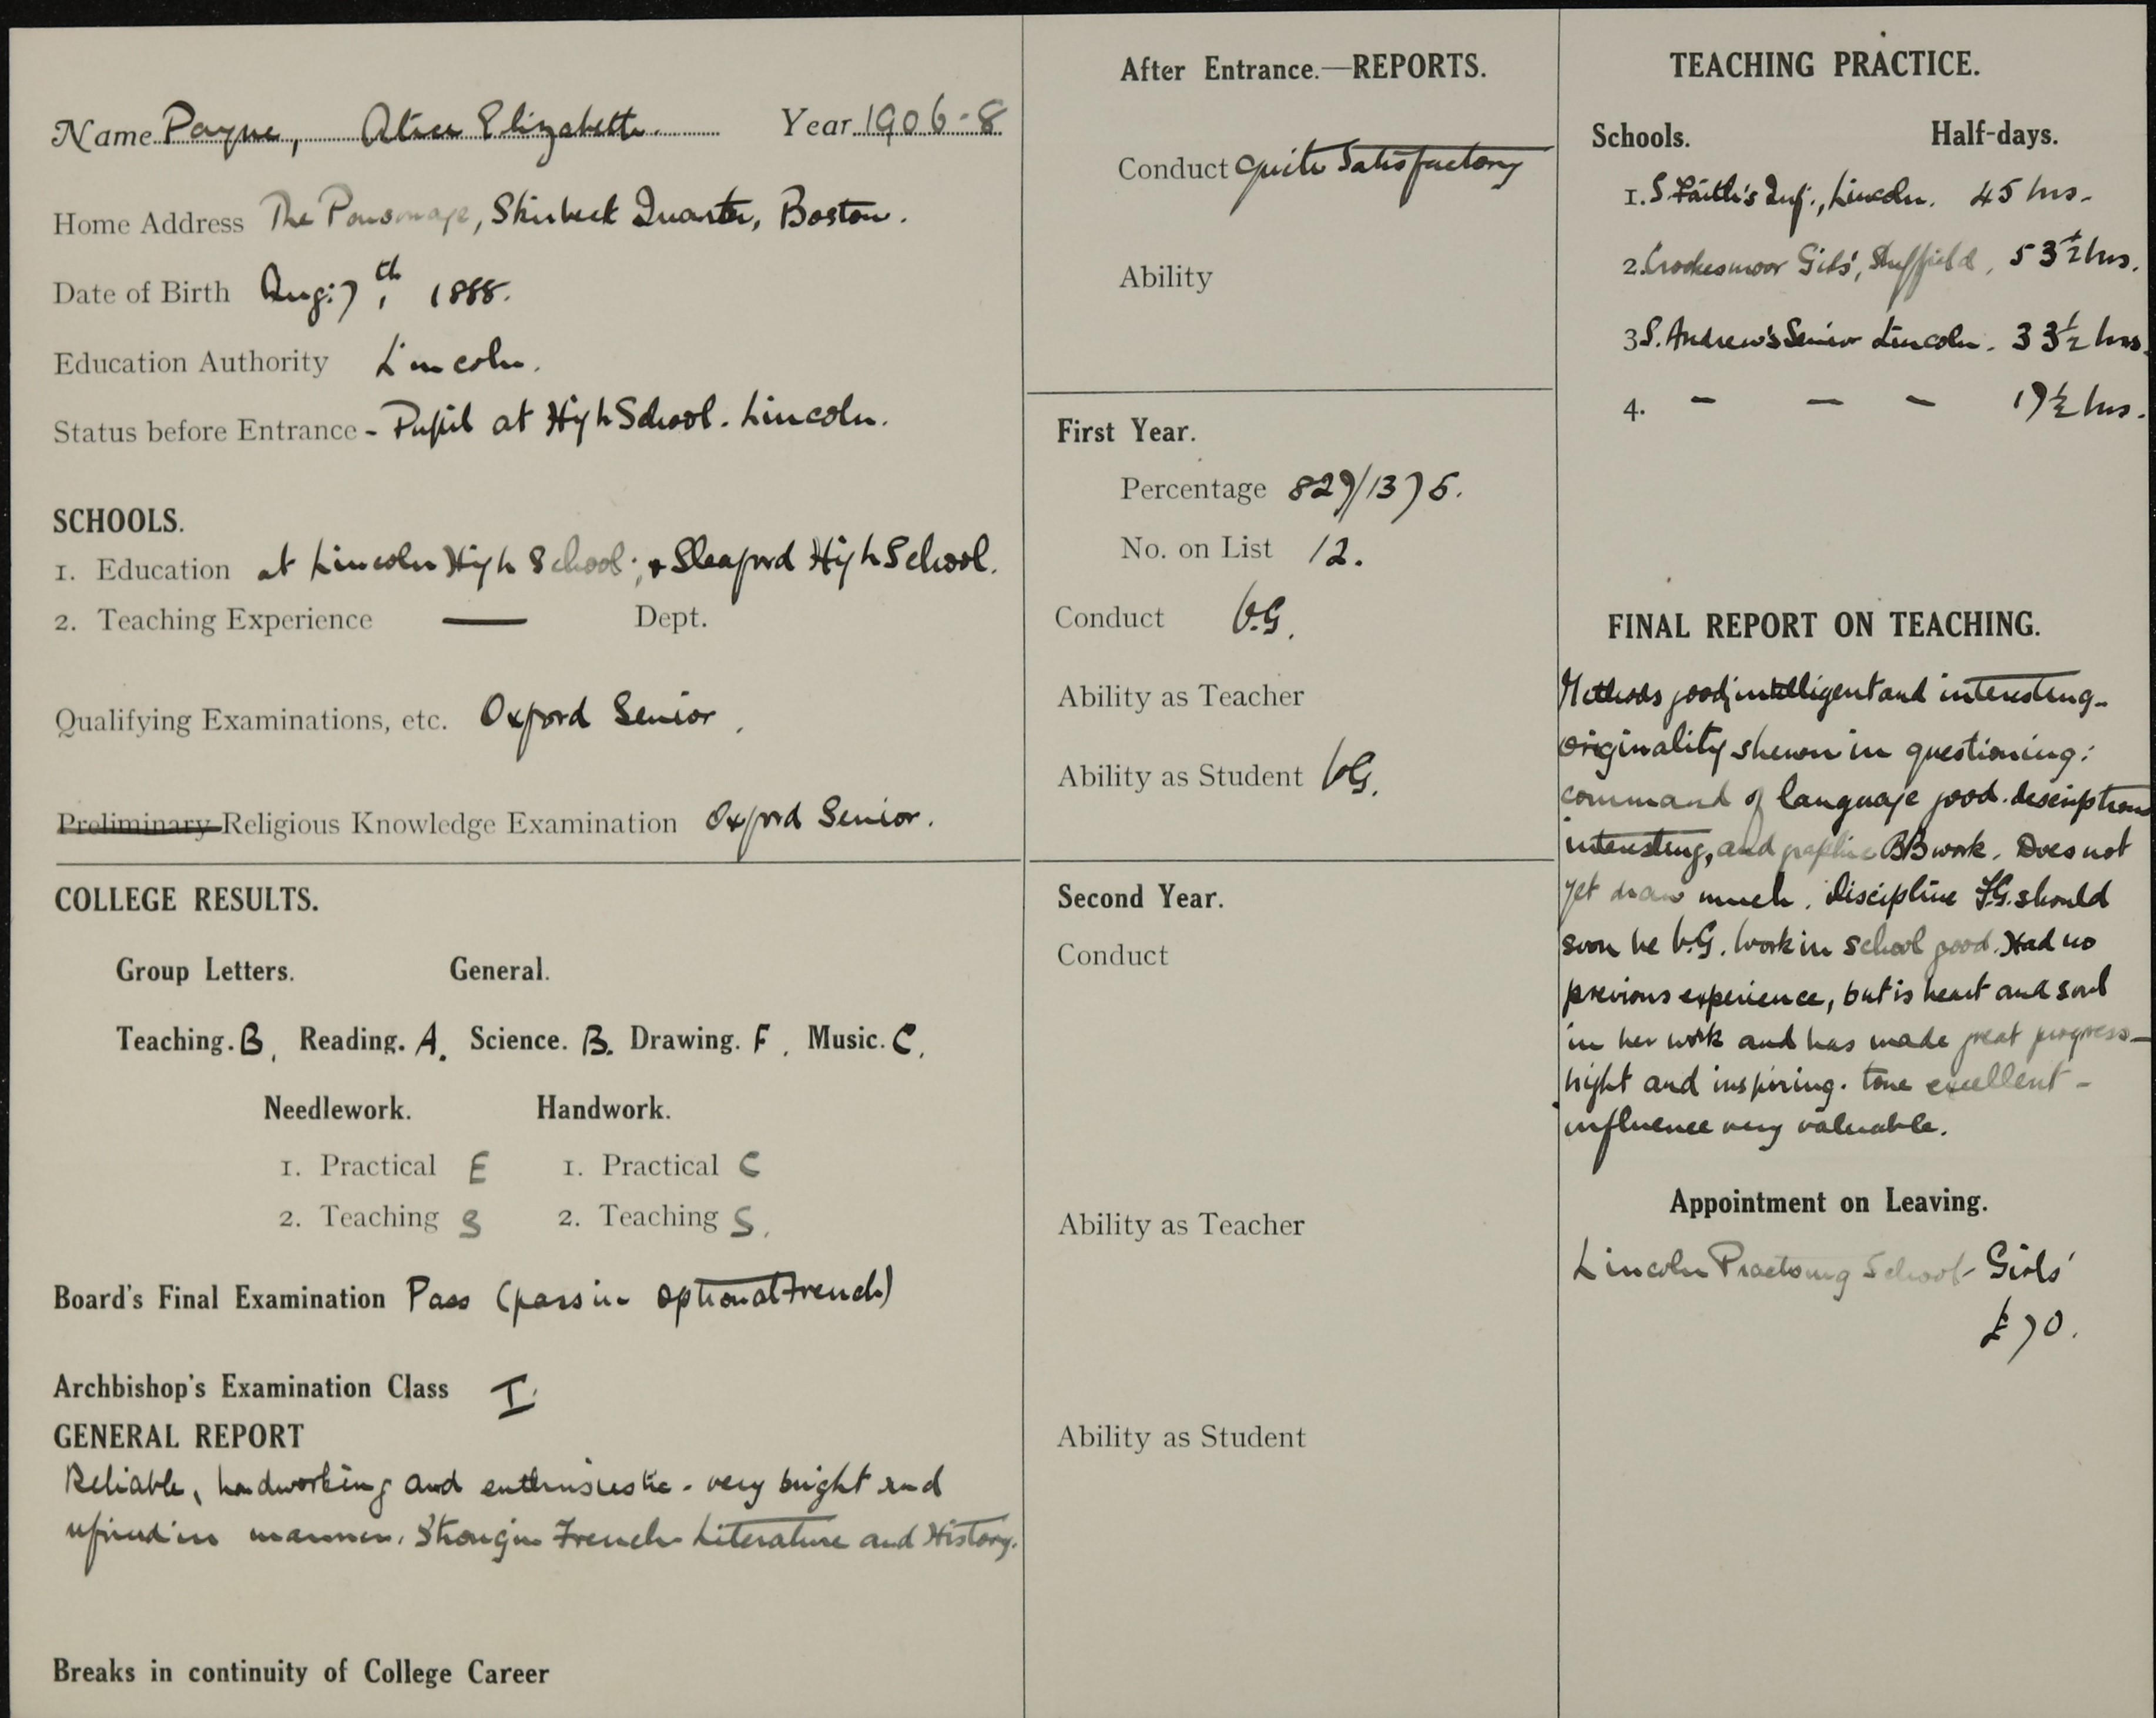 Name Payne, Alice Elizabeth. Year 1906-8
Home Address The Parsonage, Skirbeck Quarter, Boston.
Date of Birth Aug: 7th, 1888.
Education Authority Lincoln.
Status before Entrance - Pupil at High School. Lincoln.
SCHOOLS.
1. Education at Lincoln High School; & Sleaford High School.
2. Teaching Experience — Dept.
Qualifying Examinations, etc. Oxford Senior.
Preliminary Religious Knowledge Examination Oxford Senior.
COLLEGE RESULTS.
Group Letters. General.
Teaching. B. Reading. A. Science. B. Drawing. F. Music. C.
Needlework. Handwork.
1. Practical E 1. Practical C
2. Teaching S 2. Teaching S.
Board's Final Examination Pass (pass in optional French)
Archbishop's Examination Class I.
GENERAL REPORT
Reliable, hardworking and enthusiastic - very bright and
refined in manner. Strong in French Literature and History.
Breaks in continuity of College Career
After Entrance.—REPORTS.
Conduct Quite Satisfactory
Ability
First Year.
Percentage 827/1375.
No. on List 12.
Conduct V.G.
Ability as Teacher
Ability as Student VG.
Second Year.
Conduct
Ability as Teacher
Ability as Student
TEACHING PRACTICE.
Schools. Half-days.
1. S. Faith's Inf:, Lincoln. 45 hrs.
2. Crookesmoor Girls', Sheffield, 53½ hrs.
3 S. Andrew's Senior Lincoln. 33½ hrs.
4. - - - 17½ hrs.
FINAL REPORT ON TEACHING.
Methods good; intelligent and interesting -
originality shewn in questioning:
command of language good. descriptions
interesting, and graphic BB work. Does not
yet draw much. Discipline F.G. should
soon be V.G. Work in school good. Had no
previous experience, but is heart and soul
in her work and has made great progress -
bright and inspiring. tone excellent -
influence very valuable.
Appointment on Leaving.
Lincoln Practising School - Girls'
£70.